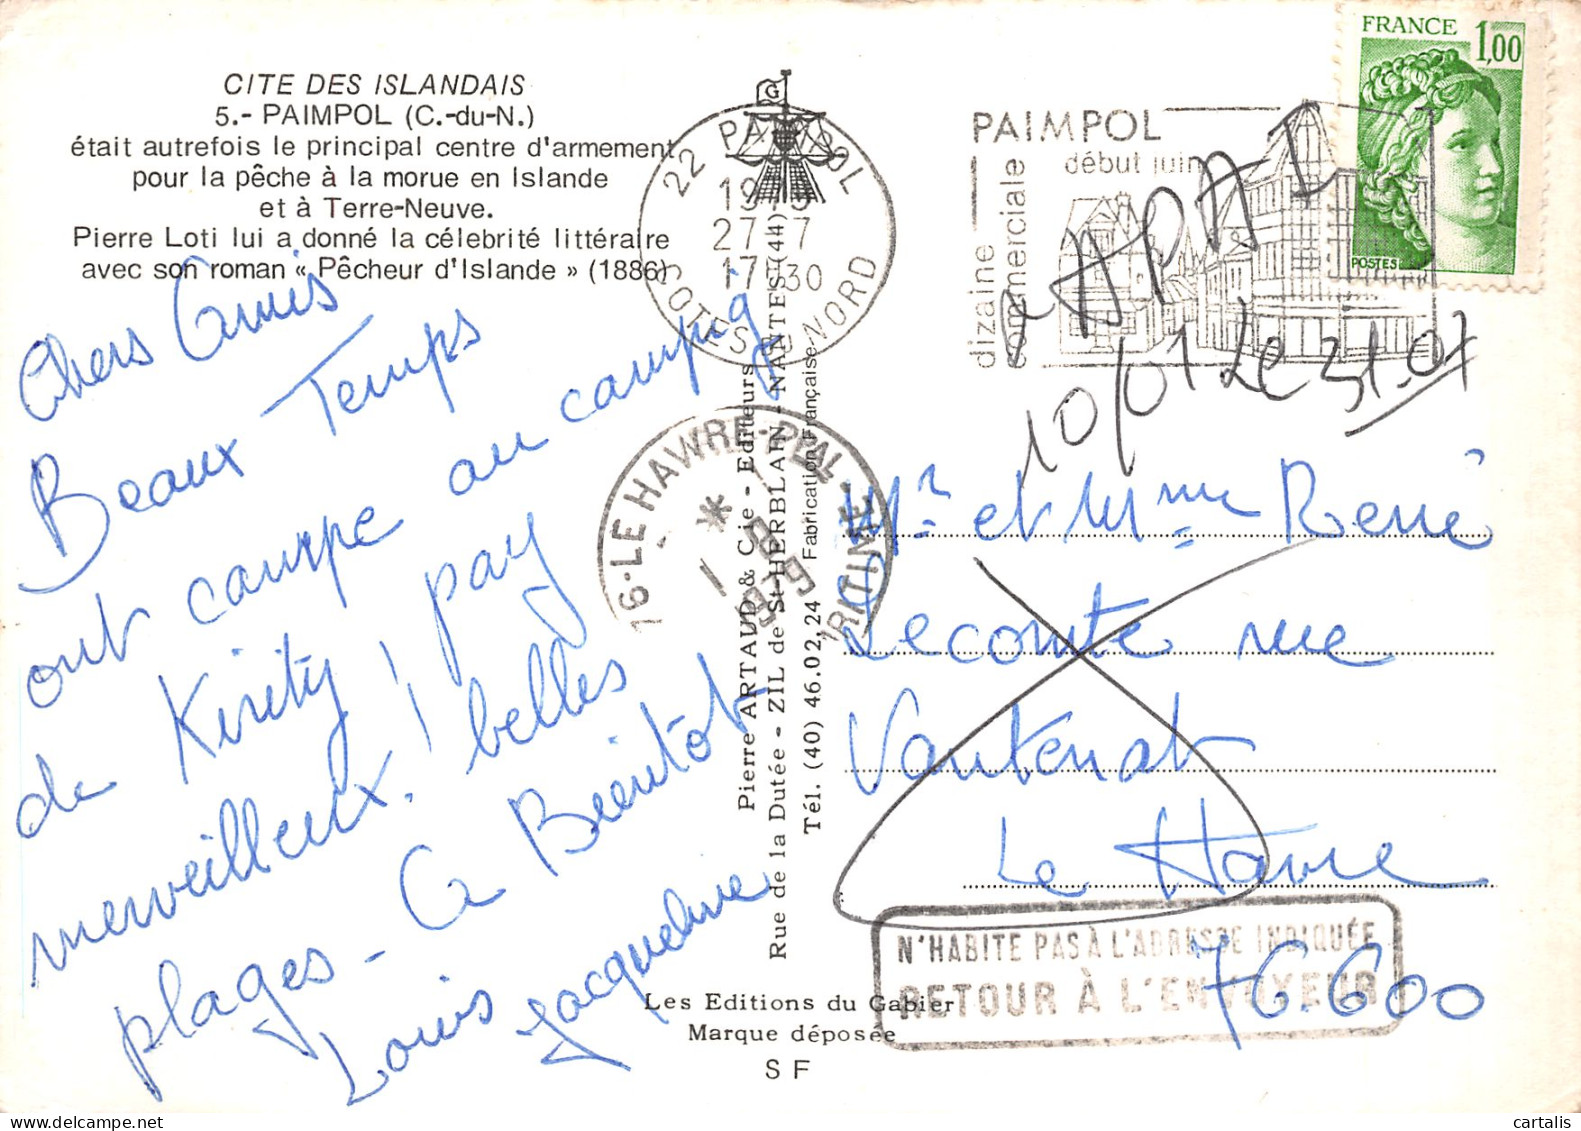 CITE DES ISLANDAIS
5.- PAIMPOL (C.-du-N.)
était autrefois le principal centre d'armement
pour la pêche à la morue en Islande
et à Terre-Neuve.
Pierre Loti lui a donné la célebrité littéraire
avec son roman « Pêcheur d'Islande » (1886)
Chers Amis
Beaux Temps
ont campe au campig
de Kirity ! pay
merveilleux. ! belles
plages - A Bientôt
Louis Jacqueline
G
22 PAIMPOL
1979
27-7
17 30
COTES DU NORD
PAIMPOL
début juin
dizaine
commerciale
FRANCE
1,00
POSTES
PAPAL
10/01 Le 31.07
76-LE HAVRE-PPAL-
RITIME
*
1 -8
1979
Pierre ARTAUD & Cie - Editeurs
Rue de la Dutée - ZIL de St-HERBLAIN - NANTES (44)
Tél. (40) 46.02.24 Fabrication Française
Mr et Mme René
Lecomte rue
Vauténat
Le Havre
76.600
N'HABITE PAS À L'ADRESSE INDIQUÉE
RETOUR À L'ENVOYEUR
Les Editions du Gabier
Marque déposée
S F
cartalis